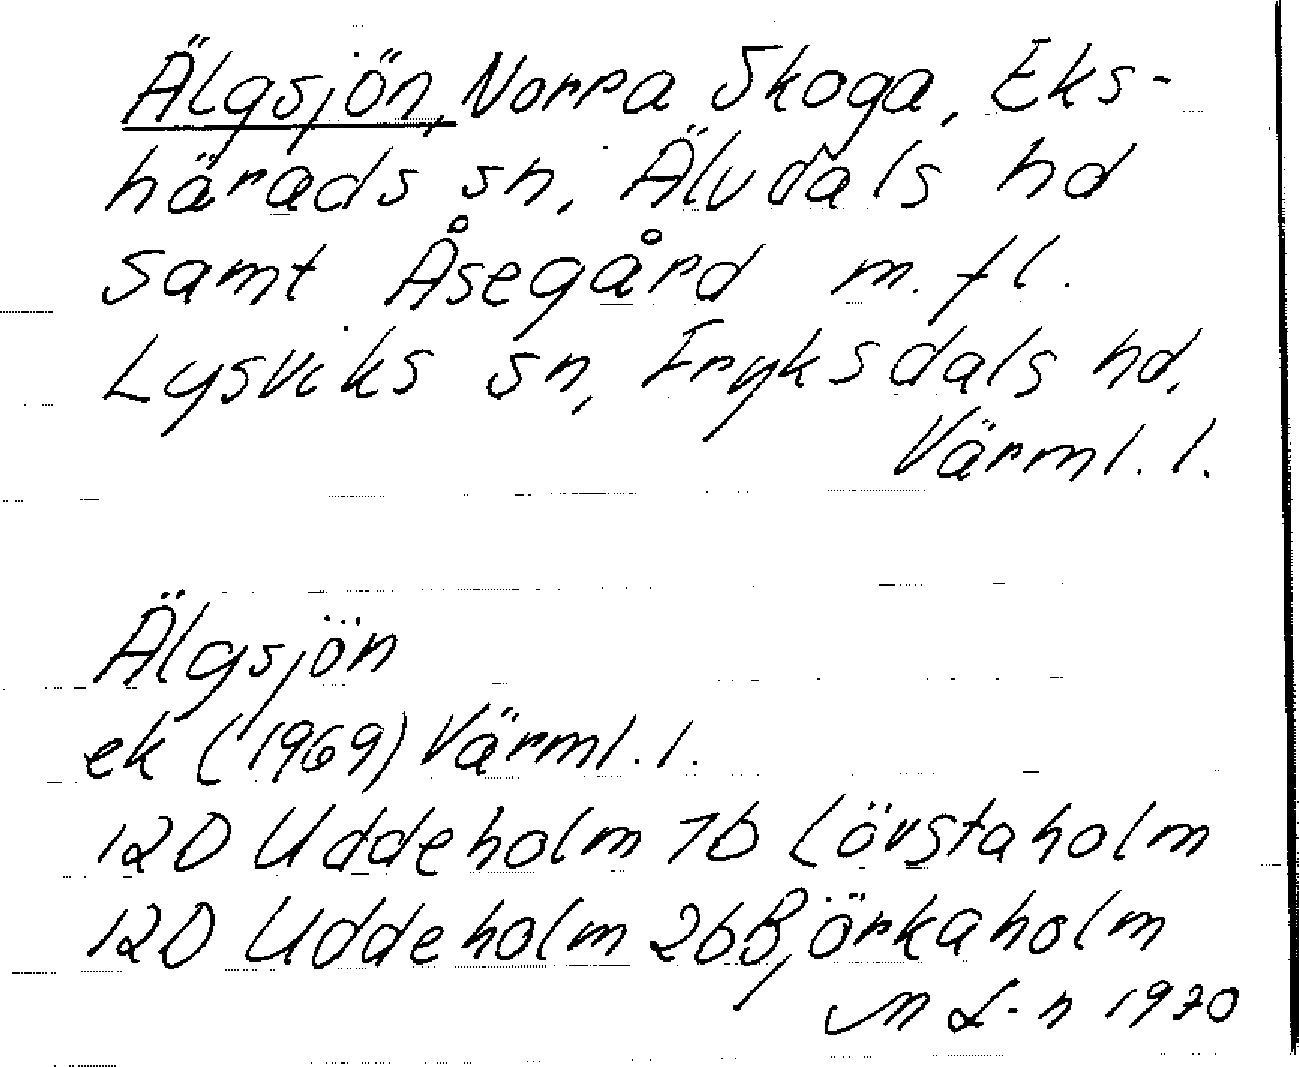 Älgsjön, Norra Skoga, Eks-
härads sn, Älvdals hd
samt Åsegård m. fl.
Lysviks sn, Fryksdals hd,
Värml. l.
Älgsjön
ek (1969) Värml. l.
12D Uddeholm 7b Lövstaholm
12D Uddeholm 2b Björkaholm
M L-n 1970